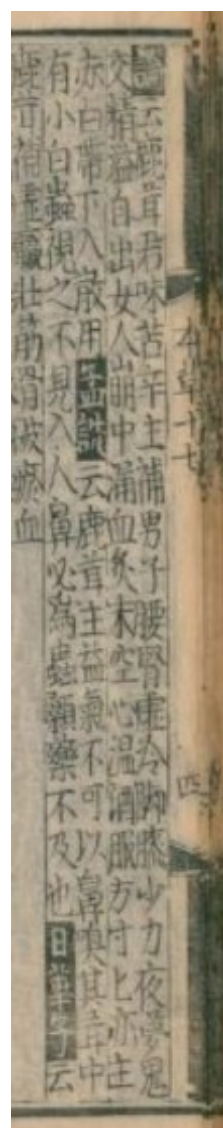 本草十七 四
云鹿茸君味苦辛主補男子腰腎虛冷脚膝少力夜夢鬼
交精溢自出女人崩中漏血炙末空心温酒服方寸匕亦主
赤白帶下入散用孟詵云鹿茸主益氣不可以鼻嗅其茸中
有小白蟲視之不見入人鼻必爲蟲顙藥不及也日華子云
補虛羸壯筋骨破瘀血